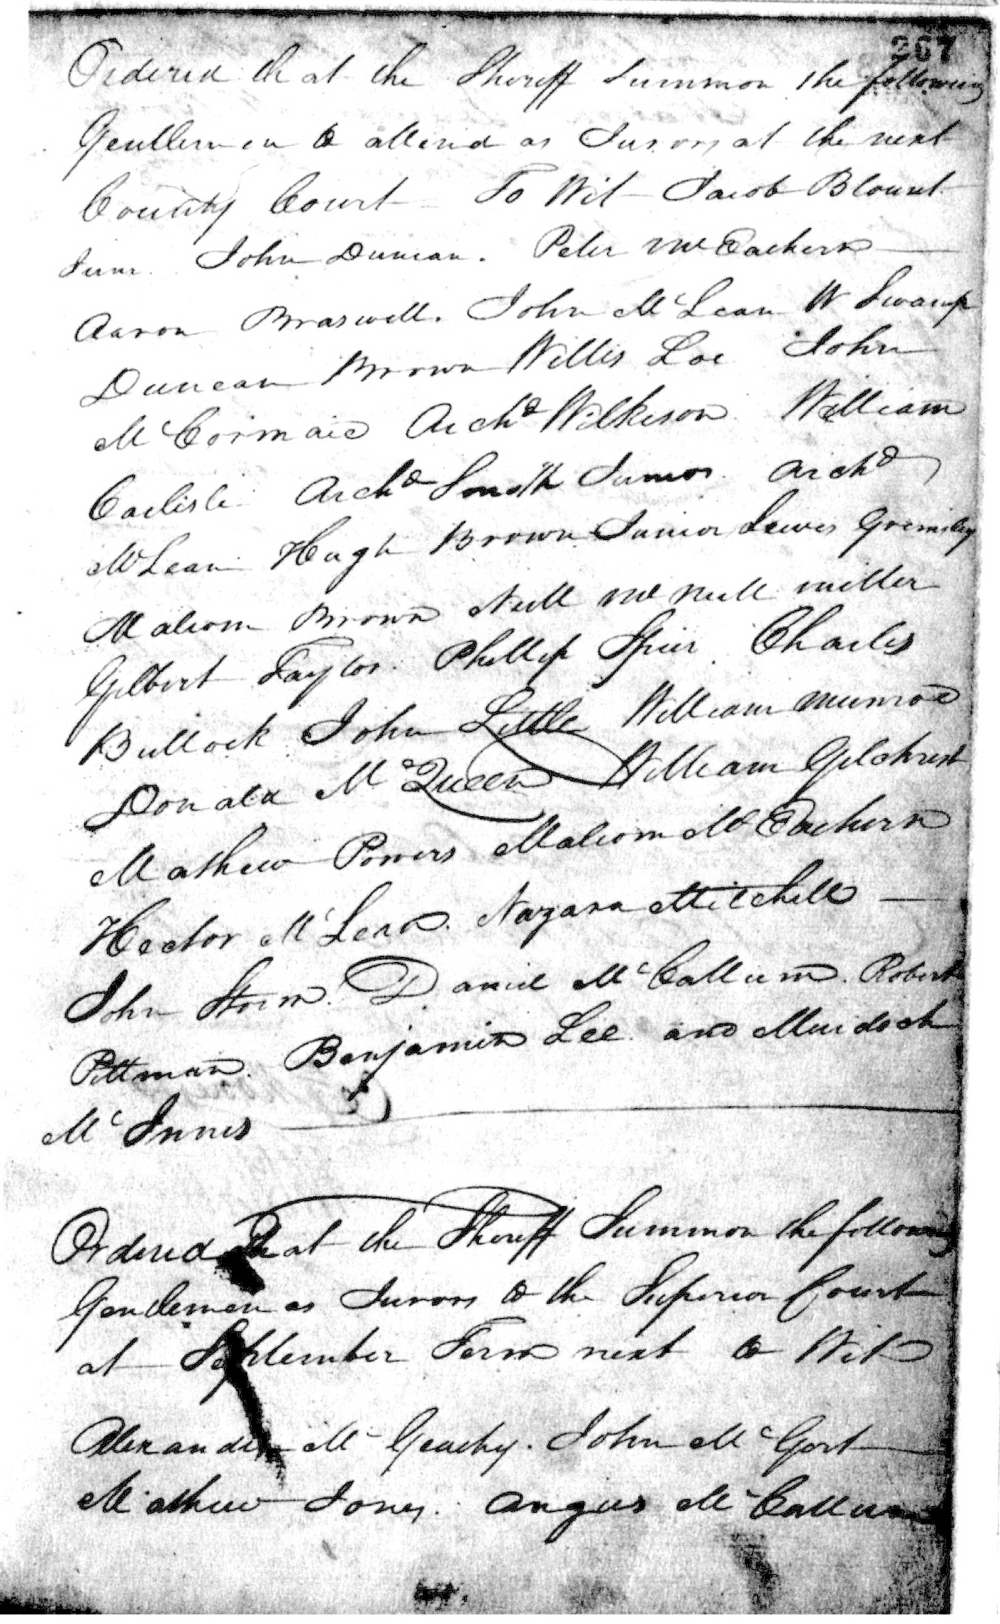 267
Ordered that the Sheriff Summon the following
Gentlemen to attend as Jurors at the next
County Court To Wit Jacob Blount
Junr. John Duncan. Peter McEachern
Aaron Braswell. John McLean W Swamp
Duncan Brown Willis Loe John
McCormaic Archd Wilkeson William
Carlisle Archd Smith Junior Archd
McLean Hugh Brown Junior Lewis Gremsley
Malcom Brown Neill McNeill miller
Gilbert Taylor. Phillip Spier. Charles
Bullock John Little William Munroe
Donald McQueen William Gilchrist
Mathew Powers Malcom McEachern
Hector McLean. Nazara Mitchell
John Storm. Daniel McCallum. Robert
Pittman. Benjamin Lee. and Murdoch
McInnis
Ordered that the Sheriff Summon the following
Gendemen as Jurors to the Superior Court
at September Term next to Wit
Alexander McGeachy. John McGort
Mathew Jones. Angus McCallum